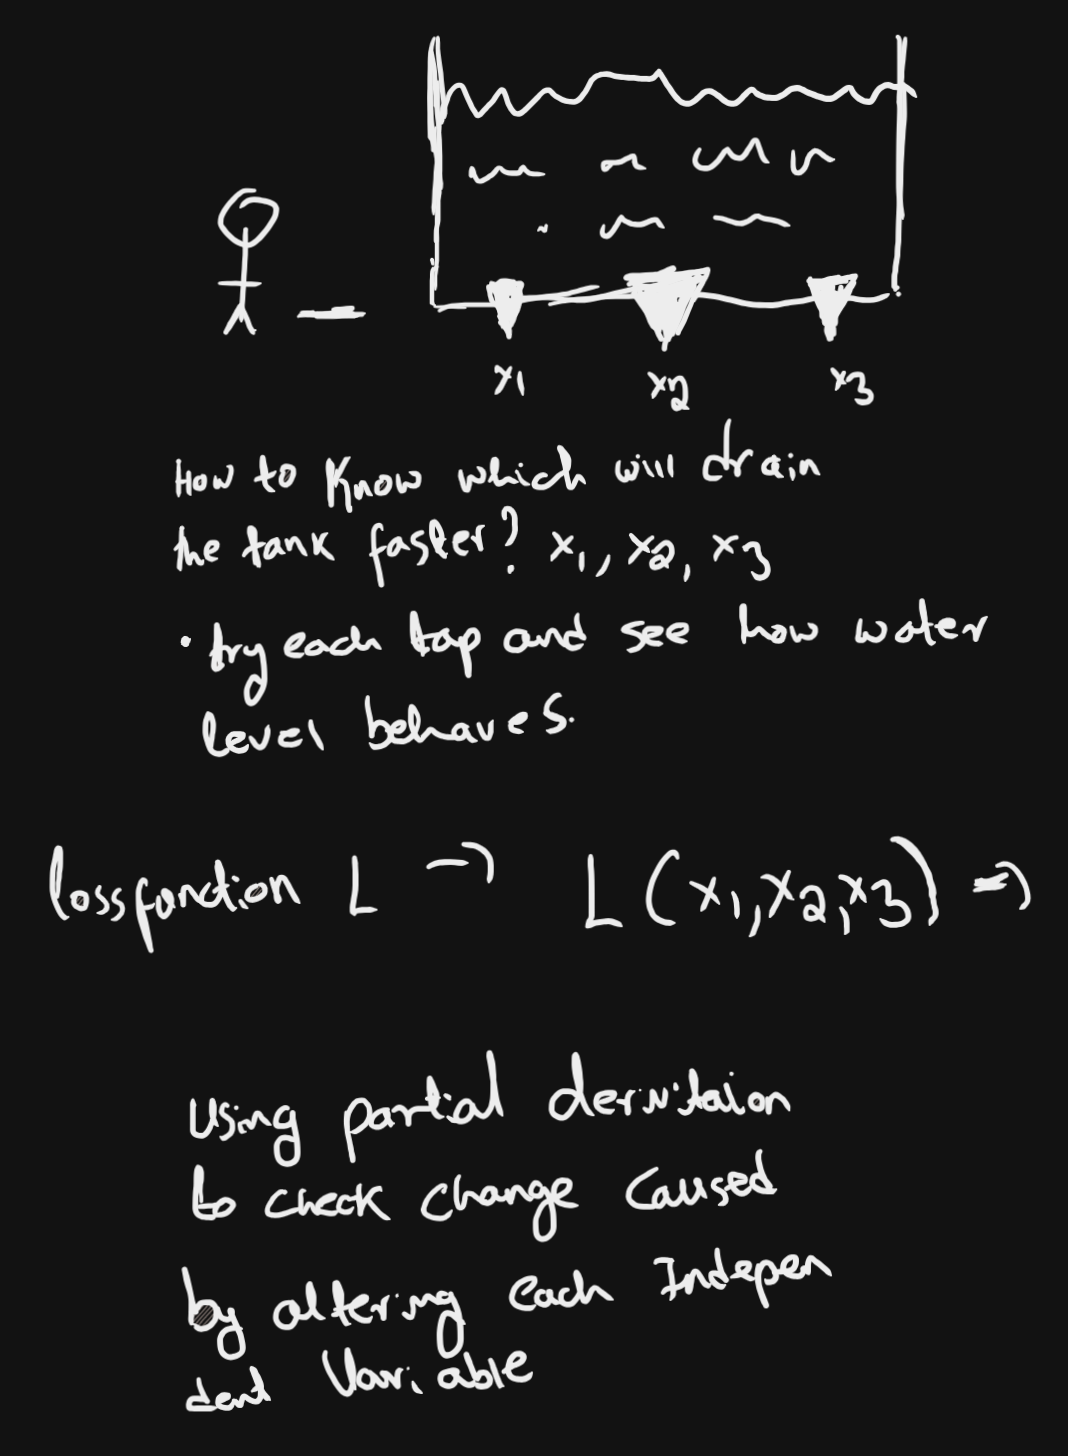 x1 x2 x3
How to know which will drain
the tank faster? x1, x2, x3
• try each tap and see how water
level behaves.
lossfunction L → L(x1,x2,x3) ⇒
Using partial derivitaion
to check change caused
by altering each Indepen
dent Variable